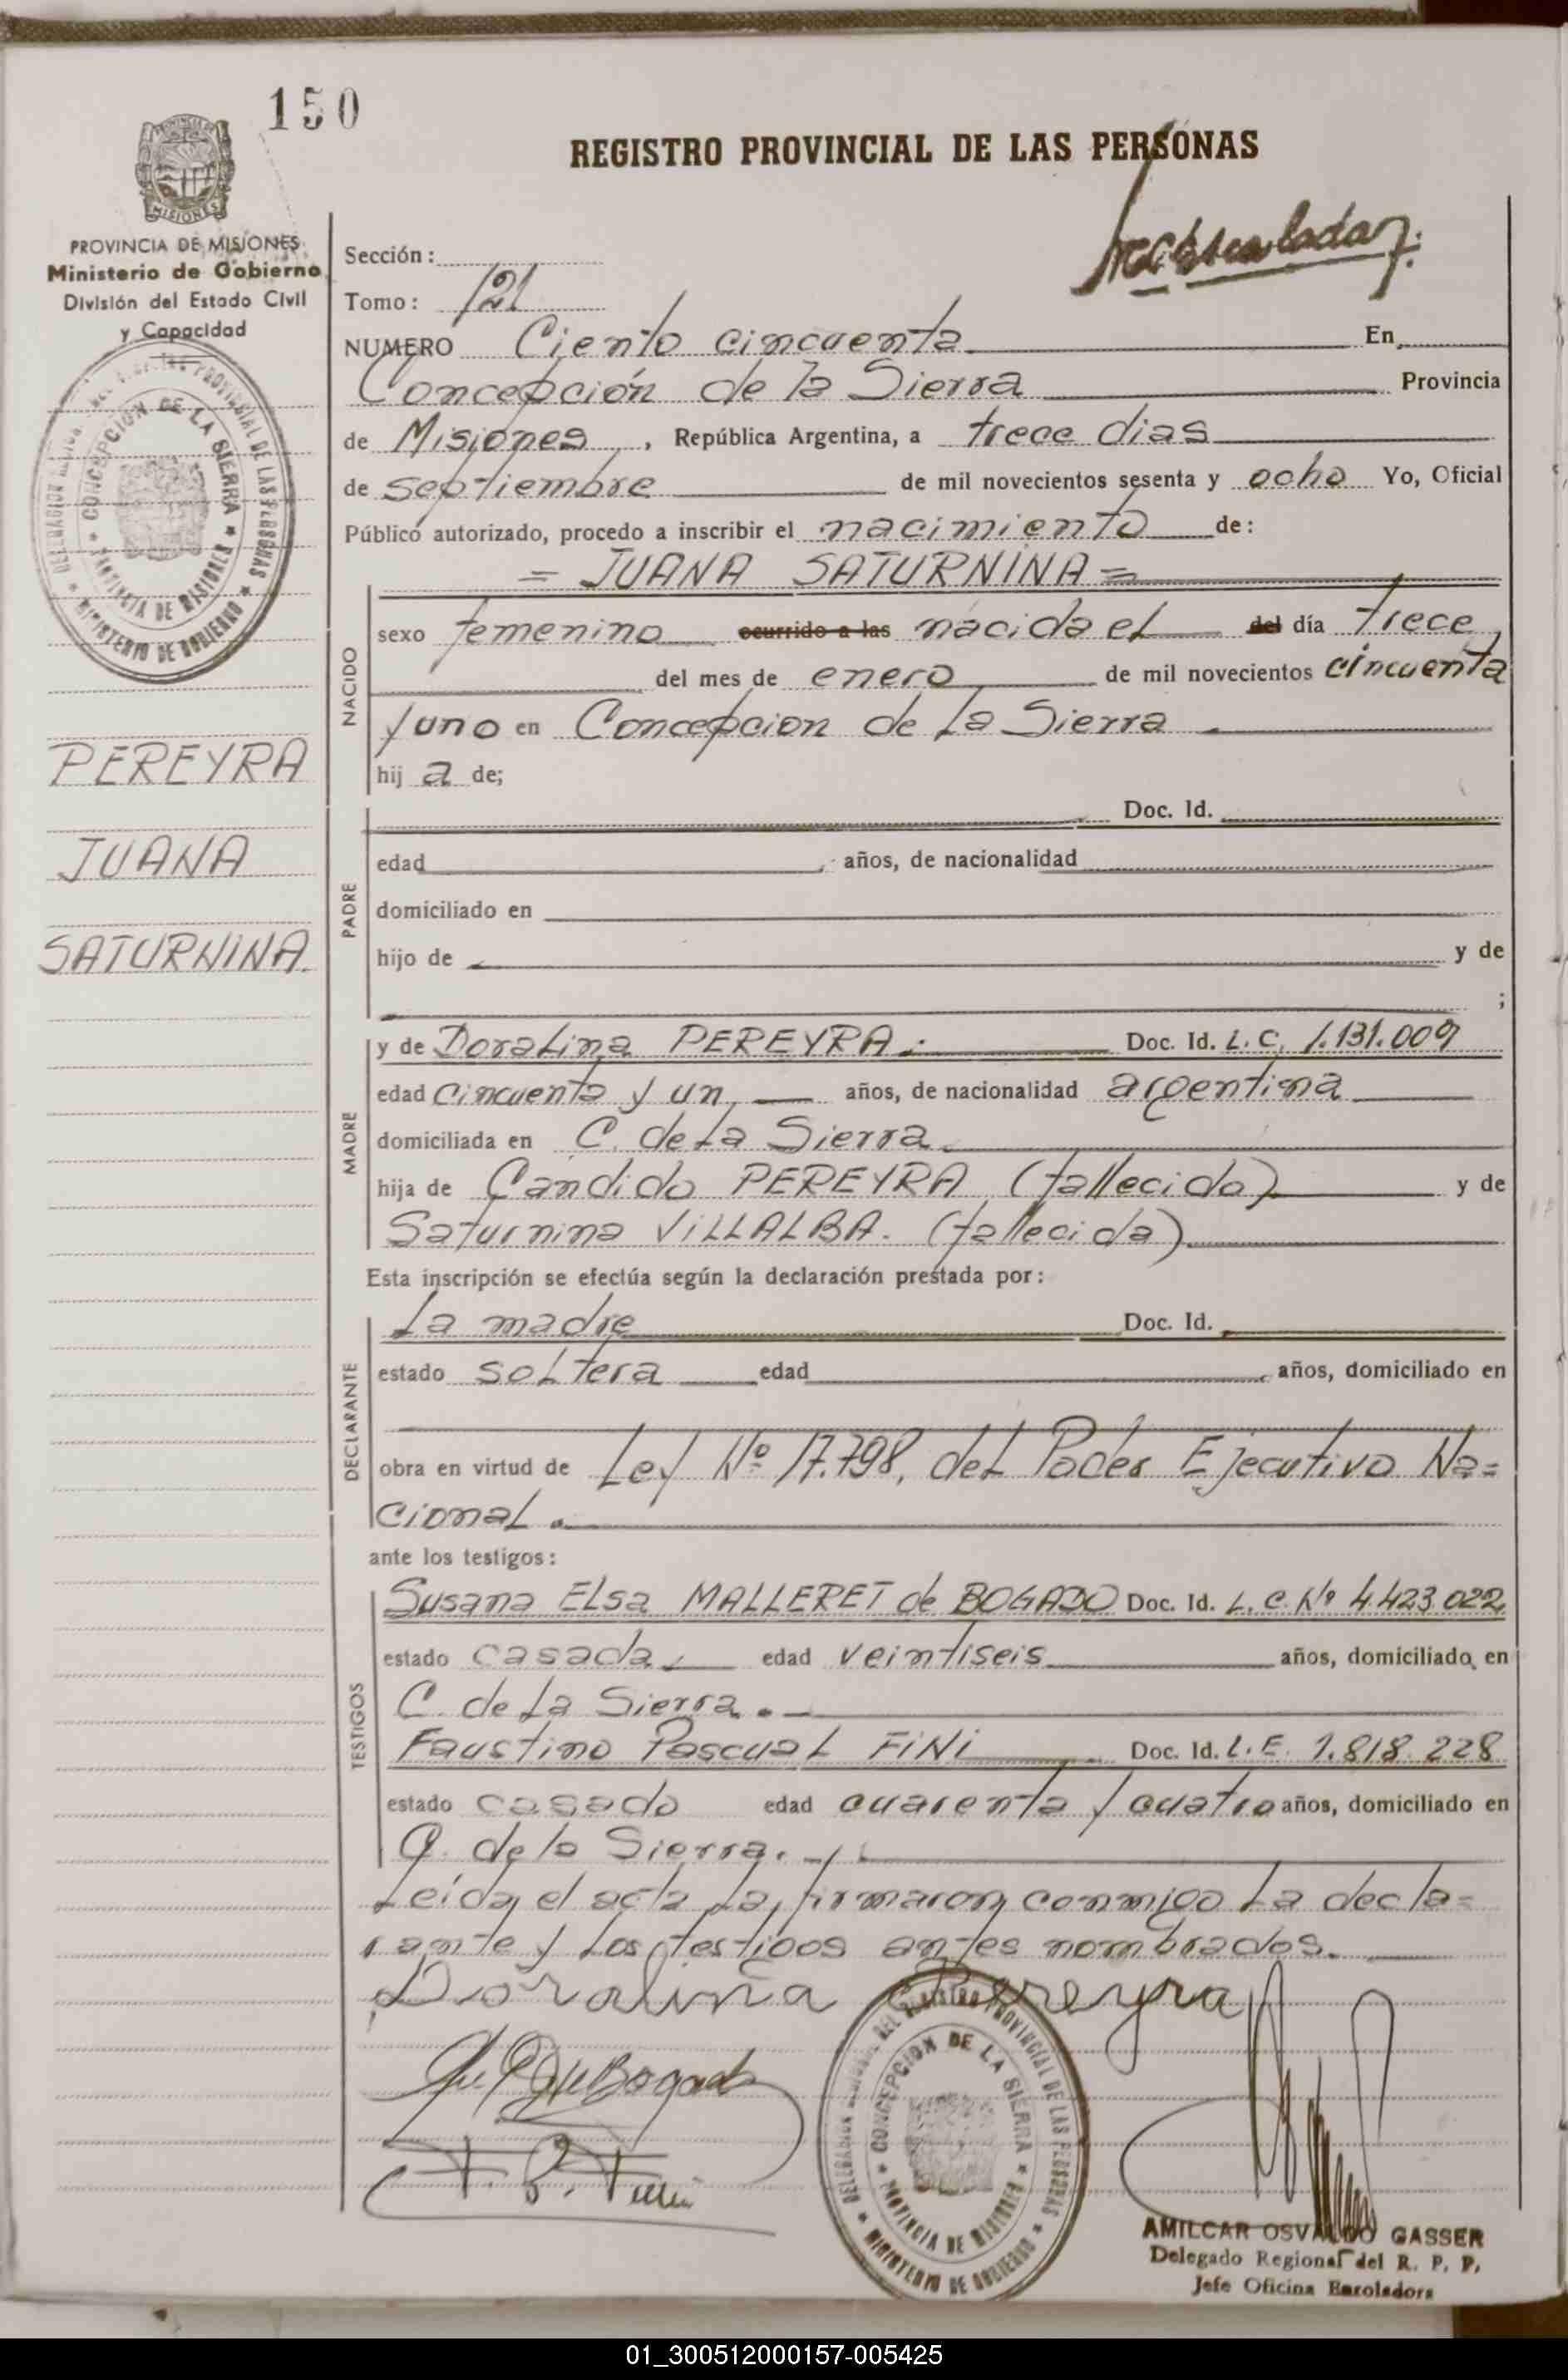 150
REGISTRO PROVINCIAL DE LAS PERSONAS
PROVINCIA DE MISIONES
MISIONES
PROVINCIA DE MISIONES
Ministerio de Gobierno
División del Estado Civil
y Capacidad
Sección:
Tomo: 121
NUMERO Ciento cincuenta En
Concepción de la Sierra Provincia
de Misiones, República Argentina, a trece dias
de septiembre de mil novecientos sesenta y ocho Yo, Oficial
Público autorizado, procedo a inscribir el nacimiento de:
= JUANA SATURNINA =
CONCEPCION DE LA SIERRA
PROVINCIA DE MISIONES
MINISTERIO DE GOBIERNO
NACIDO
sexo femenino ocurrido a las nacida el del día trece
del mes de enero de mil novecientos cincuenta
y uno en Concepcion de La Sierra
hij a de;
PEREYRA
JUANA
SATURNINA.
PADRE
Doc. Id.
edad , años, de nacionalidad
domiciliado en
hijo de y de
;
MADRE
y de Doralina PEREYRA. Doc. Id. L. C. 1.131.009
edad cincuenta y un años, de nacionalidad argentina
domiciliada en C. de La Sierra
hija de Candido PEREYRA (fallecido) y de
Saturnina VILLALBA. (fallecida)
Esta inscripción se efectúa según la declaración prestada por:
DECLARANTE
La madre Doc. Id.
estado soltera edad , años, domiciliado en
obra en virtud de Ley Nº 17.798, del Poder Ejecutivo Na=
cional.
ante los testigos:
TESTIGOS
Susana Elsa MALLERET de BOGADO Doc. Id. L. C. Nº 4.423.022
estado casada edad veintiseis años, domiciliado en
C. de La Sierra.
Faustino Pascual FINI Doc. Id. L. E. 1.818.228
estado casado edad cuarenta y cuatro años, domiciliado en
C. de la Sierra.
Leida el acta La firmaron conmigo La decla=
rante y Los testigos antes nombrados.
Doralina Pereyra
Bogado
F. P. Fini
CONCEPCION DE LA SIERRA
PROVINCIA DE MISIONES
MINISTERIO DE GOBIERNO
AMILCAR OSVALDO GASSER
Delegado Regional del R. P. P.
Jefe Oficina Enroladora
01_300512000157-005425